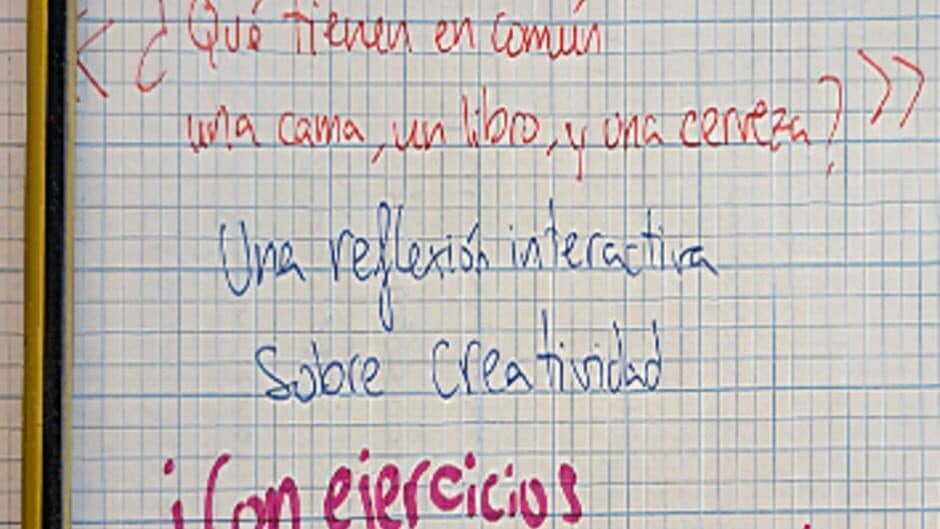 <<¿Qué tienen en común
una cama, un libro, y una cerveza?>>
Una reflexión interactiva
Sobre Creatividad
¡Con ejercicios